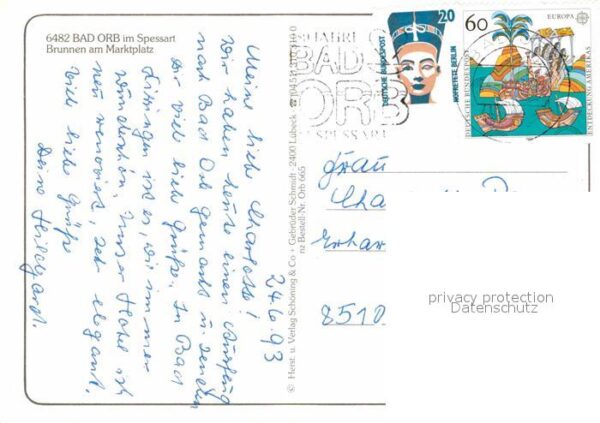 6482 BAD ORB im Spessart
Brunnen am Marktplatz
24.6.93
Meine liebe Charlotte!
Wir haben heute einen Ausflug
nach Bad Orb gemacht u. senden
Dir viele liebe Grüße. In Bad
Kissingen ist es, wie immer
wunderschön. Unser Hotel ist
neu renoviert, sehr elegant.
Viele liebe Grüße
Deine Hildegard.
© Herst. u. Verlag Schöning & Co + Gebrüder Schmidt, 2400 Lübeck
Bestell-Nr. Orb 665
JAHRE
BAD
ORB
SPESSART
20
DEUTSCHE BUNDESPOST
NOFRETETE BERLIN
60
EUROPA
DEUTSCHE BUNDESPOST
ENTDECKUNG AMERIKAS
Frau
Cha
Erhar
8510
privacy protection
Datenschutz